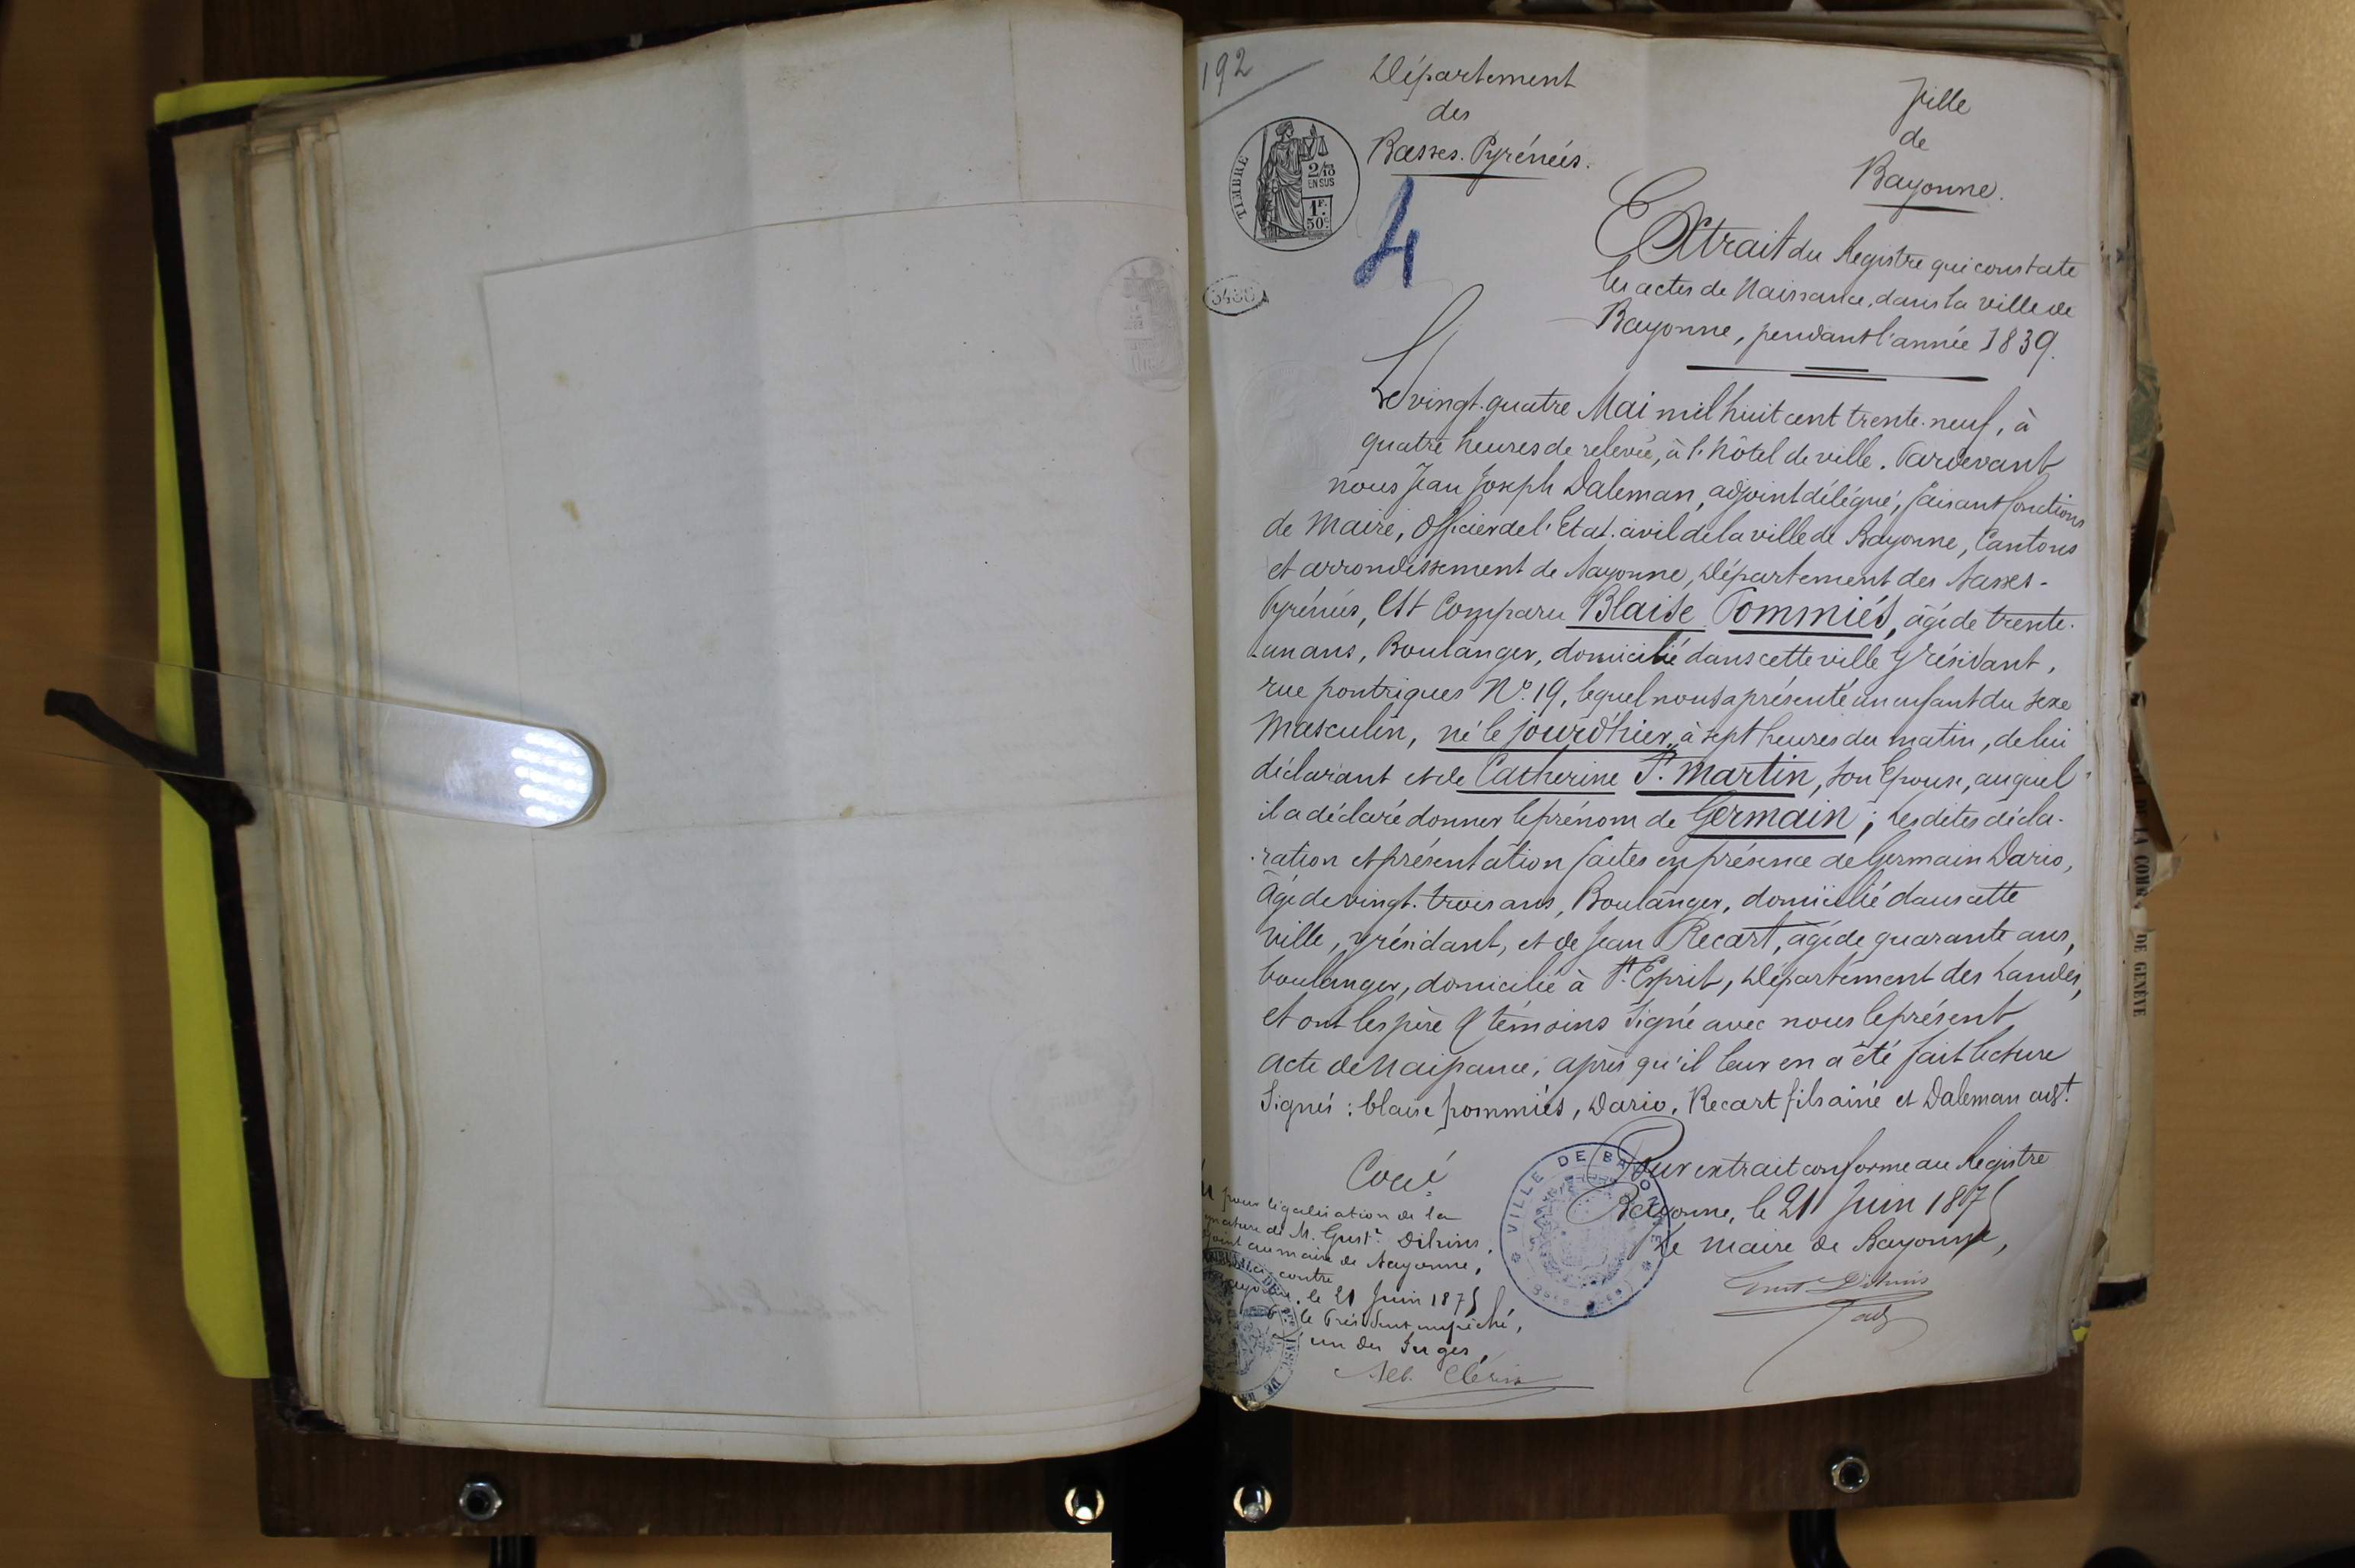 192
Département
des
Basses-Pyrénées.
Ville
de
Bayonne.
TIMBRE
2/10
EN SUS
1F.
50c.
4
Extrait du Registre qui constate
les actes de Naissance, dans la ville de
Bayonne, pendant l'année 1839.
Le vingt-quatre Mai mil huit cent trente-neuf, à
quatre heures de relevée, à l'hôtel de ville. Pardevant
nous Jean Joseph Daleman, adjoint délégué, faisant fonctions
de Maire, Officier de l'Etat-civil de la ville de Bayonne, Cantons
et arrondissement de Bayonne, Département des Basses-
Pyrénées, Est Comparu Blaise Pommiés, âgé de trente-
un ans, Boulanger, domicilié dans cette ville y résidant,
rue pontriques No. 19, lequel nous a présenté un enfant du sexe
Masculin, né le jour d'hier, à sept heures du matin, de lui
déclarant et de Catherine St. Martin, son Epouse, auquel
il a déclaré donner le prénom de Germain; Lesdites décla-
ration et présentation faites en présence de Germain Dario,
âgé de vingt-trois ans, Boulanger, domicilié dans cette
ville, y résidant, et de Jean Recart, âgé de quarante ans,
boulanger, domicilié à St. Esprit, Département des Landes,
et ont les père & témoins Signé avec nous le présent
acte de Naissance, après qu'il leur en a été fait lecture
Signés: blaise pommiés, Dario, Recart fils ainé et Daleman adjt.
Coté
Pour extrait conforme au Registre
Bayonne, le 21 Juin 1875
Le Maire de Bayonne,
VILLE DE BAYONNE
pour légalisation de la
de M. Gust.
au maire de Bayonne,
contre
le 21 Juin 1875
le Président empêché,
un des Juges,
DE LA COMP. DE GENÈVE